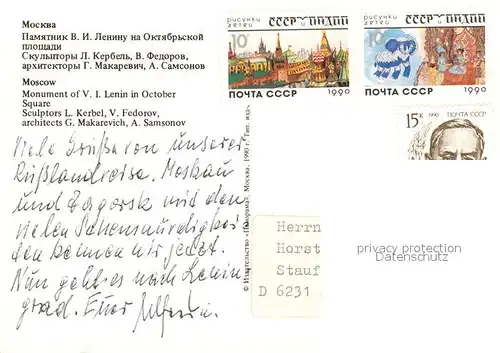 Москва
Памятник В. И. Ленину на Октябрьской
площади
Скульпторы Л. Кербель, В. Федоров,
архитекторы Г. Макаревич, А. Самсонов
Moscow
Monument of V. I. Lenin in October
Square
Sculptors L. Kerbel, V. Fedorov,
architects G. Makarevich, A. Samsonov
рисунки детей СССР И ИНДИИ
10
ПОЧТА СССР 1990
рисунки детей СССР И ИНДИИ
10
ПОЧТА СССР 1990
15к 1990 ПОЧТА СССР
Viele Grüße von unserer
Rußlandreise. Moskau
und Zagorsk mit den
vielen Sehenswürdigkei
ten kennen wir jetzt.
Nun geht es nach Lenin
grad. Euer
© Издательство «Панорама». Москва, 1990 г.
Herrn
Horst
Stauf
D 6231
privacy protection
Datenschutz